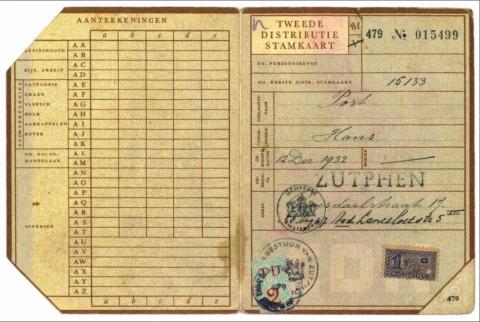 AANTEEKENINGEN
a b c d e
GEZINSHOOFD
AA
AB
BIJZ. ARBEID
AC
AD
CATEGORIE
AE
GRAAN
AF
VLEESCH
AG
MELK
AH
AARDAPPELEN
AI
BOTER
AJ
AK
AL
AM
AN
AO
AP
AQ
AR
DIVERSEN
AS
AT
AU
AV
AW
AX
AY
AZ
a b c d e
n
TWEEDE
DISTRIBUTIE
STAMKAART
M
V
479 No 015499
NO. PERSOONSBEWIJS
NO. EERSTE DISTR. STAMKAART
15133
Post
Hans
12 Dec 1932
ZUTPHEN
GEMEENTE
17.
5
BESTUUR VAN ZUTPHEN
TD
2
1
CONTROLE
479